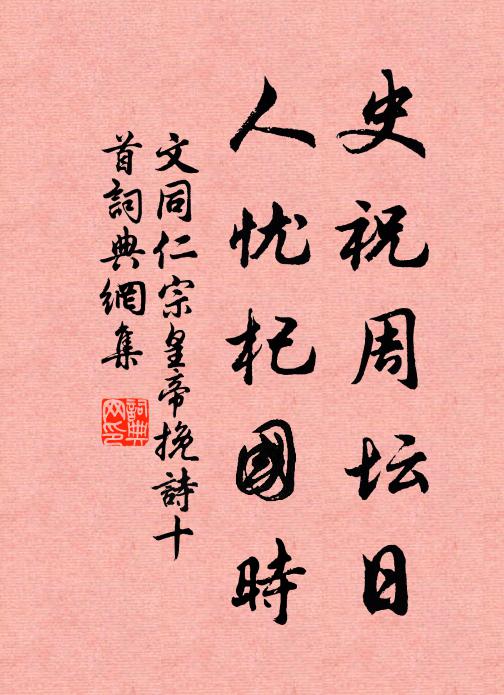 史祝周坛日
人忧杞國時
文同仁宗皇帝挽詩十
首詞典網集
詞典网印